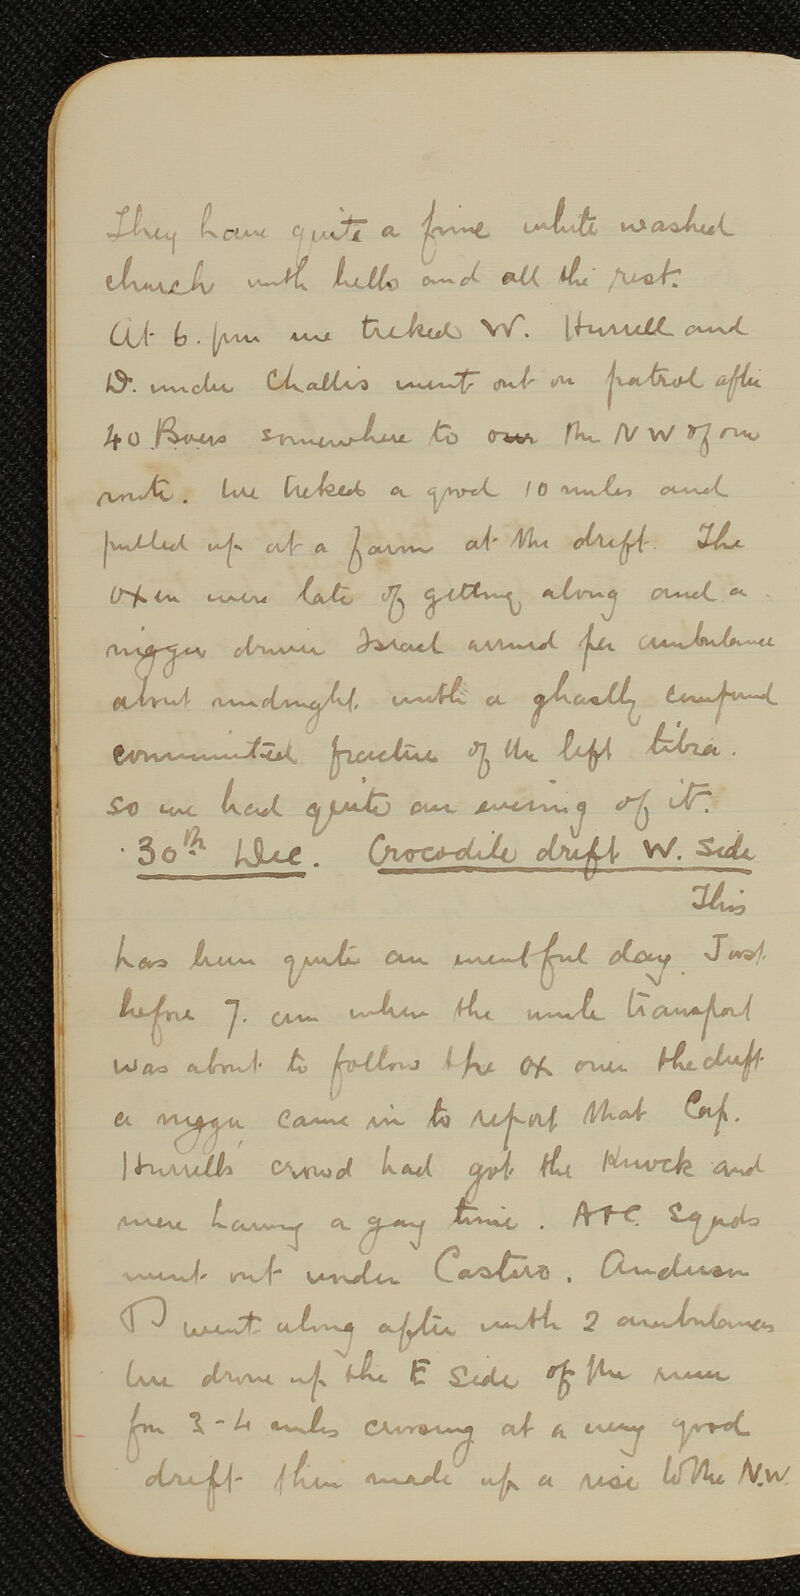 They have quite a fine white washed
church with bells and all the rest.
At 6. pm we treked W. Hurrell and
D. under Challis went out on patrol after
40 Boers somewhere to our the NW of our
route. We treked a good 10 miles and
pulled up at a farm at the drift. The
oxen were late of getting along and a
nigger driver Israel arrived per ambulance
about midnight with a ghastly compound
comminuted fracture of the left tibia.
so we had quite an evening of it.
30th Dec. Crocodile drift W. Side
This
has been quite an eventful day. Just
before 7. am when the mule transport
was about to follow the ox over the drift
a nigger came in to report that Cap.
Hurrells crowd had got the knock and
were having a gay time. A & C. Sqads
went out under Casters. Anderson
went along after with 2 ambulances
We drove up the E Side of the river
for 3-4 miles crossing at a very good
drift then made up a rise to the N.W.